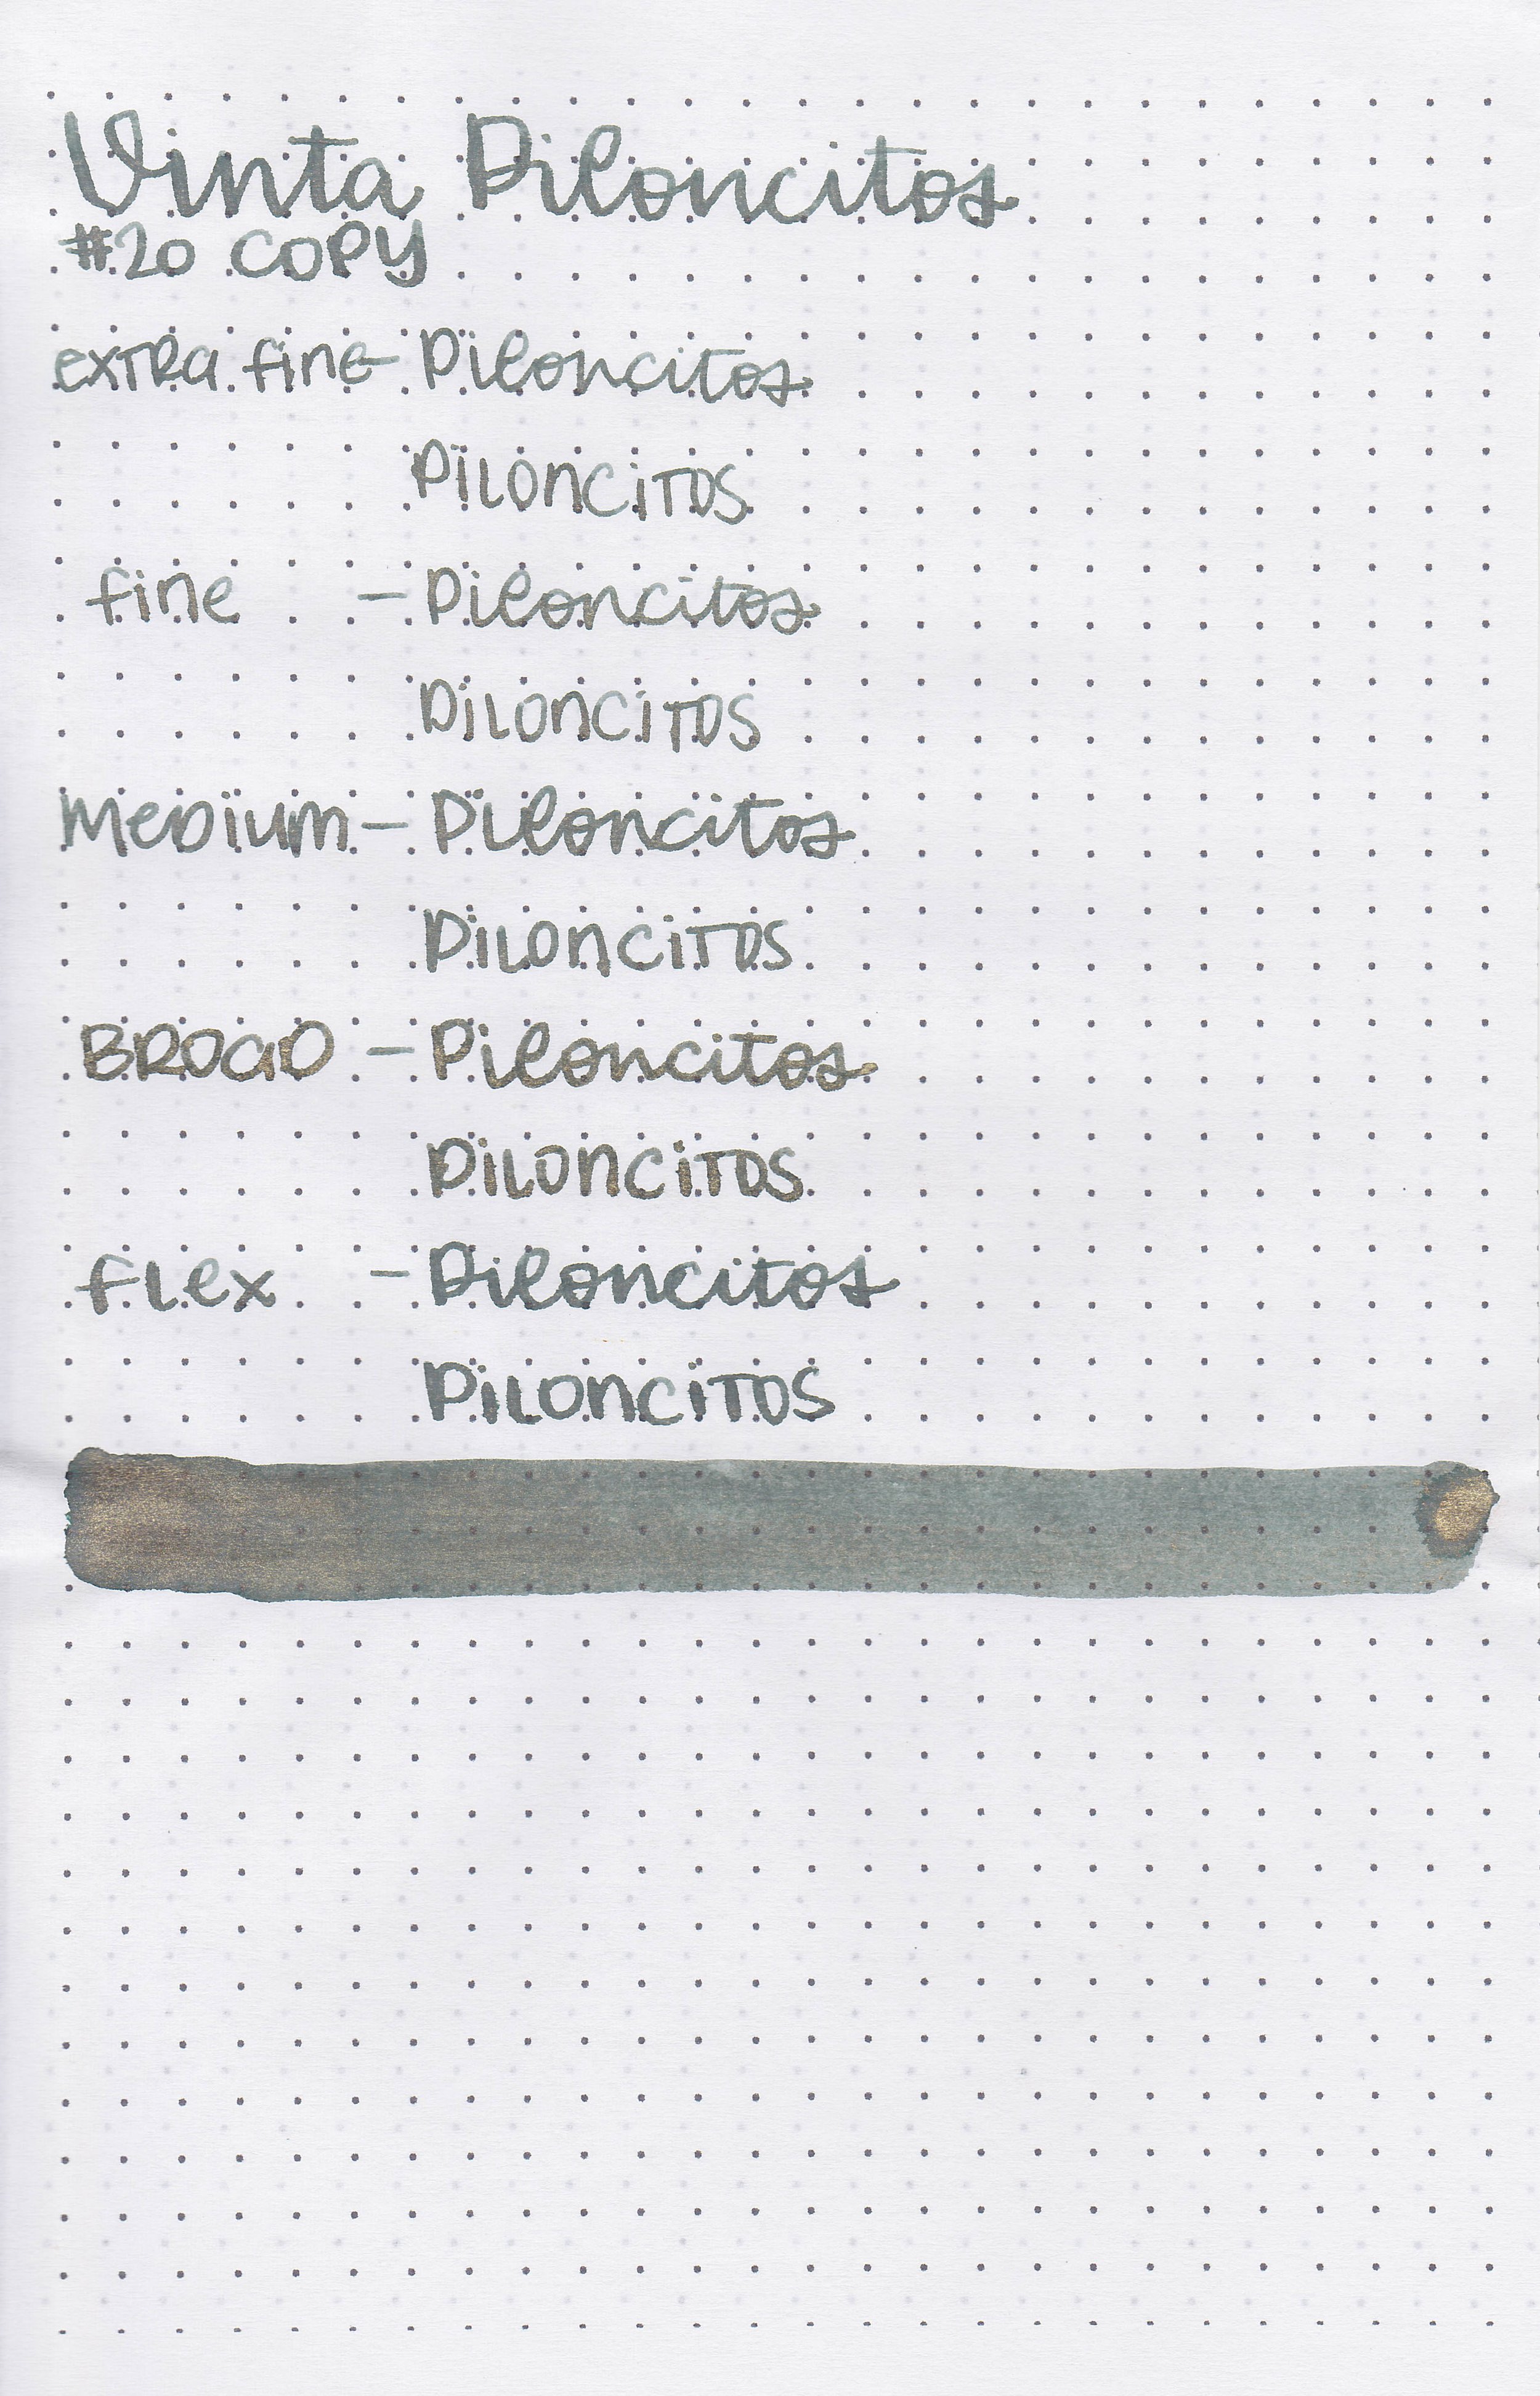 Vinta Piloncitos
#20 COPY
extra fine - Piloncitos
PILONCITOS
fine - Piloncitos
PILONCITOS
MeDium - Piloncitos
PILONCITOS
BROaD - Piloncitos
PILONCITOS
fLex - Piloncitos
PILONCITOS